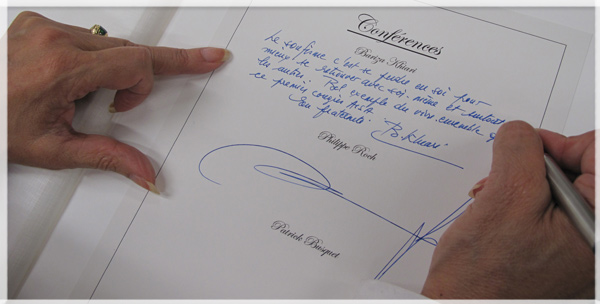 Conférences
Bariza Khiari
Le soufisme c'est se perdre en soi pour
mieux se retrouver avec soi-même et surtout
les autres. Bel exemple du vivre ensemble
ce premier congrès
En fraternité. B. Khiari
Philippe Roch
Patrick Busquet